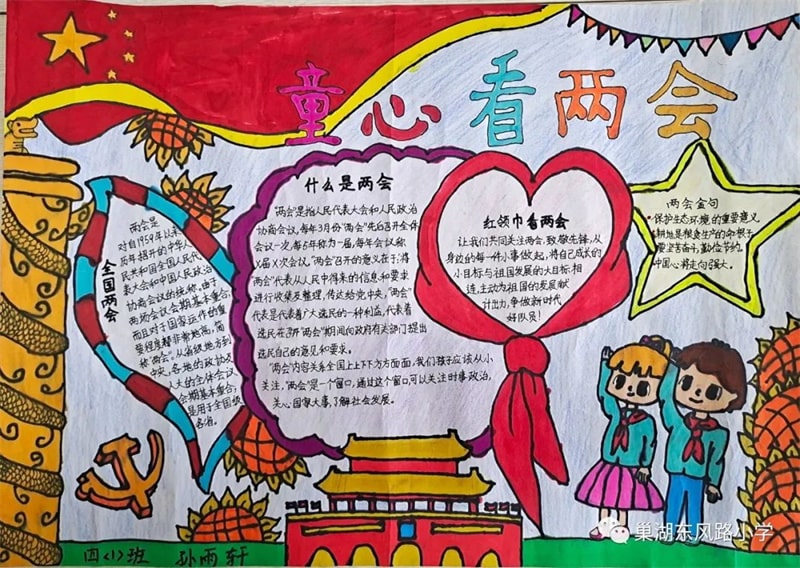 童心看两会
全国两会
两会是
对自1959年以来
历年召开的中华人
民共和国全国人民代
表大会和中国人民政治
协商会议的统称。由于
两场会议会期基本重合,
而且对于国家运作的重
要程度都非常地高,简
称“两会”。从省级地方到
中央,各地的政协及
人大的全体会议
会期基本重合,
是用于全国级
各省。
什么是两会
“两会”是指人民代表大会和人民政治
协商会议,每年3月份“两会”先后召开全体
会议一次,每5年称为一届,每年会议称
X届X次会议。“两会”召开的意义在于:将
“两会”代表从人民中得来的信息和要求
进行收集及整理,传达给党中央,“两会”
代表是代表着广大选民的一种利益,代表着
选民在召开“两会”期间向政府有关部门提出
选民自己的意见和要求。
“两会”内容关系全国上上下下方方面面,我们孩子应该从小
关注,“两会”是一个窗口,通过这个窗口,可以关注时事政治,
关心国家大事,了解社会发展。
红领巾看两会
让我们共同关注两会,致敬先锋,从
身边的每一件小事做起,将自己成长的
小目标与祖国发展的大目标相
连,主动为祖国的发展献
计出力,争做新时代
好队员!
两会金句
保护生态环境的重要意义
耕地是粮食生产的命根子
要艰苦奋斗,勤俭节约。
中国必将走向强大。
四(1)班 孙雨轩
巢湖东风路小学